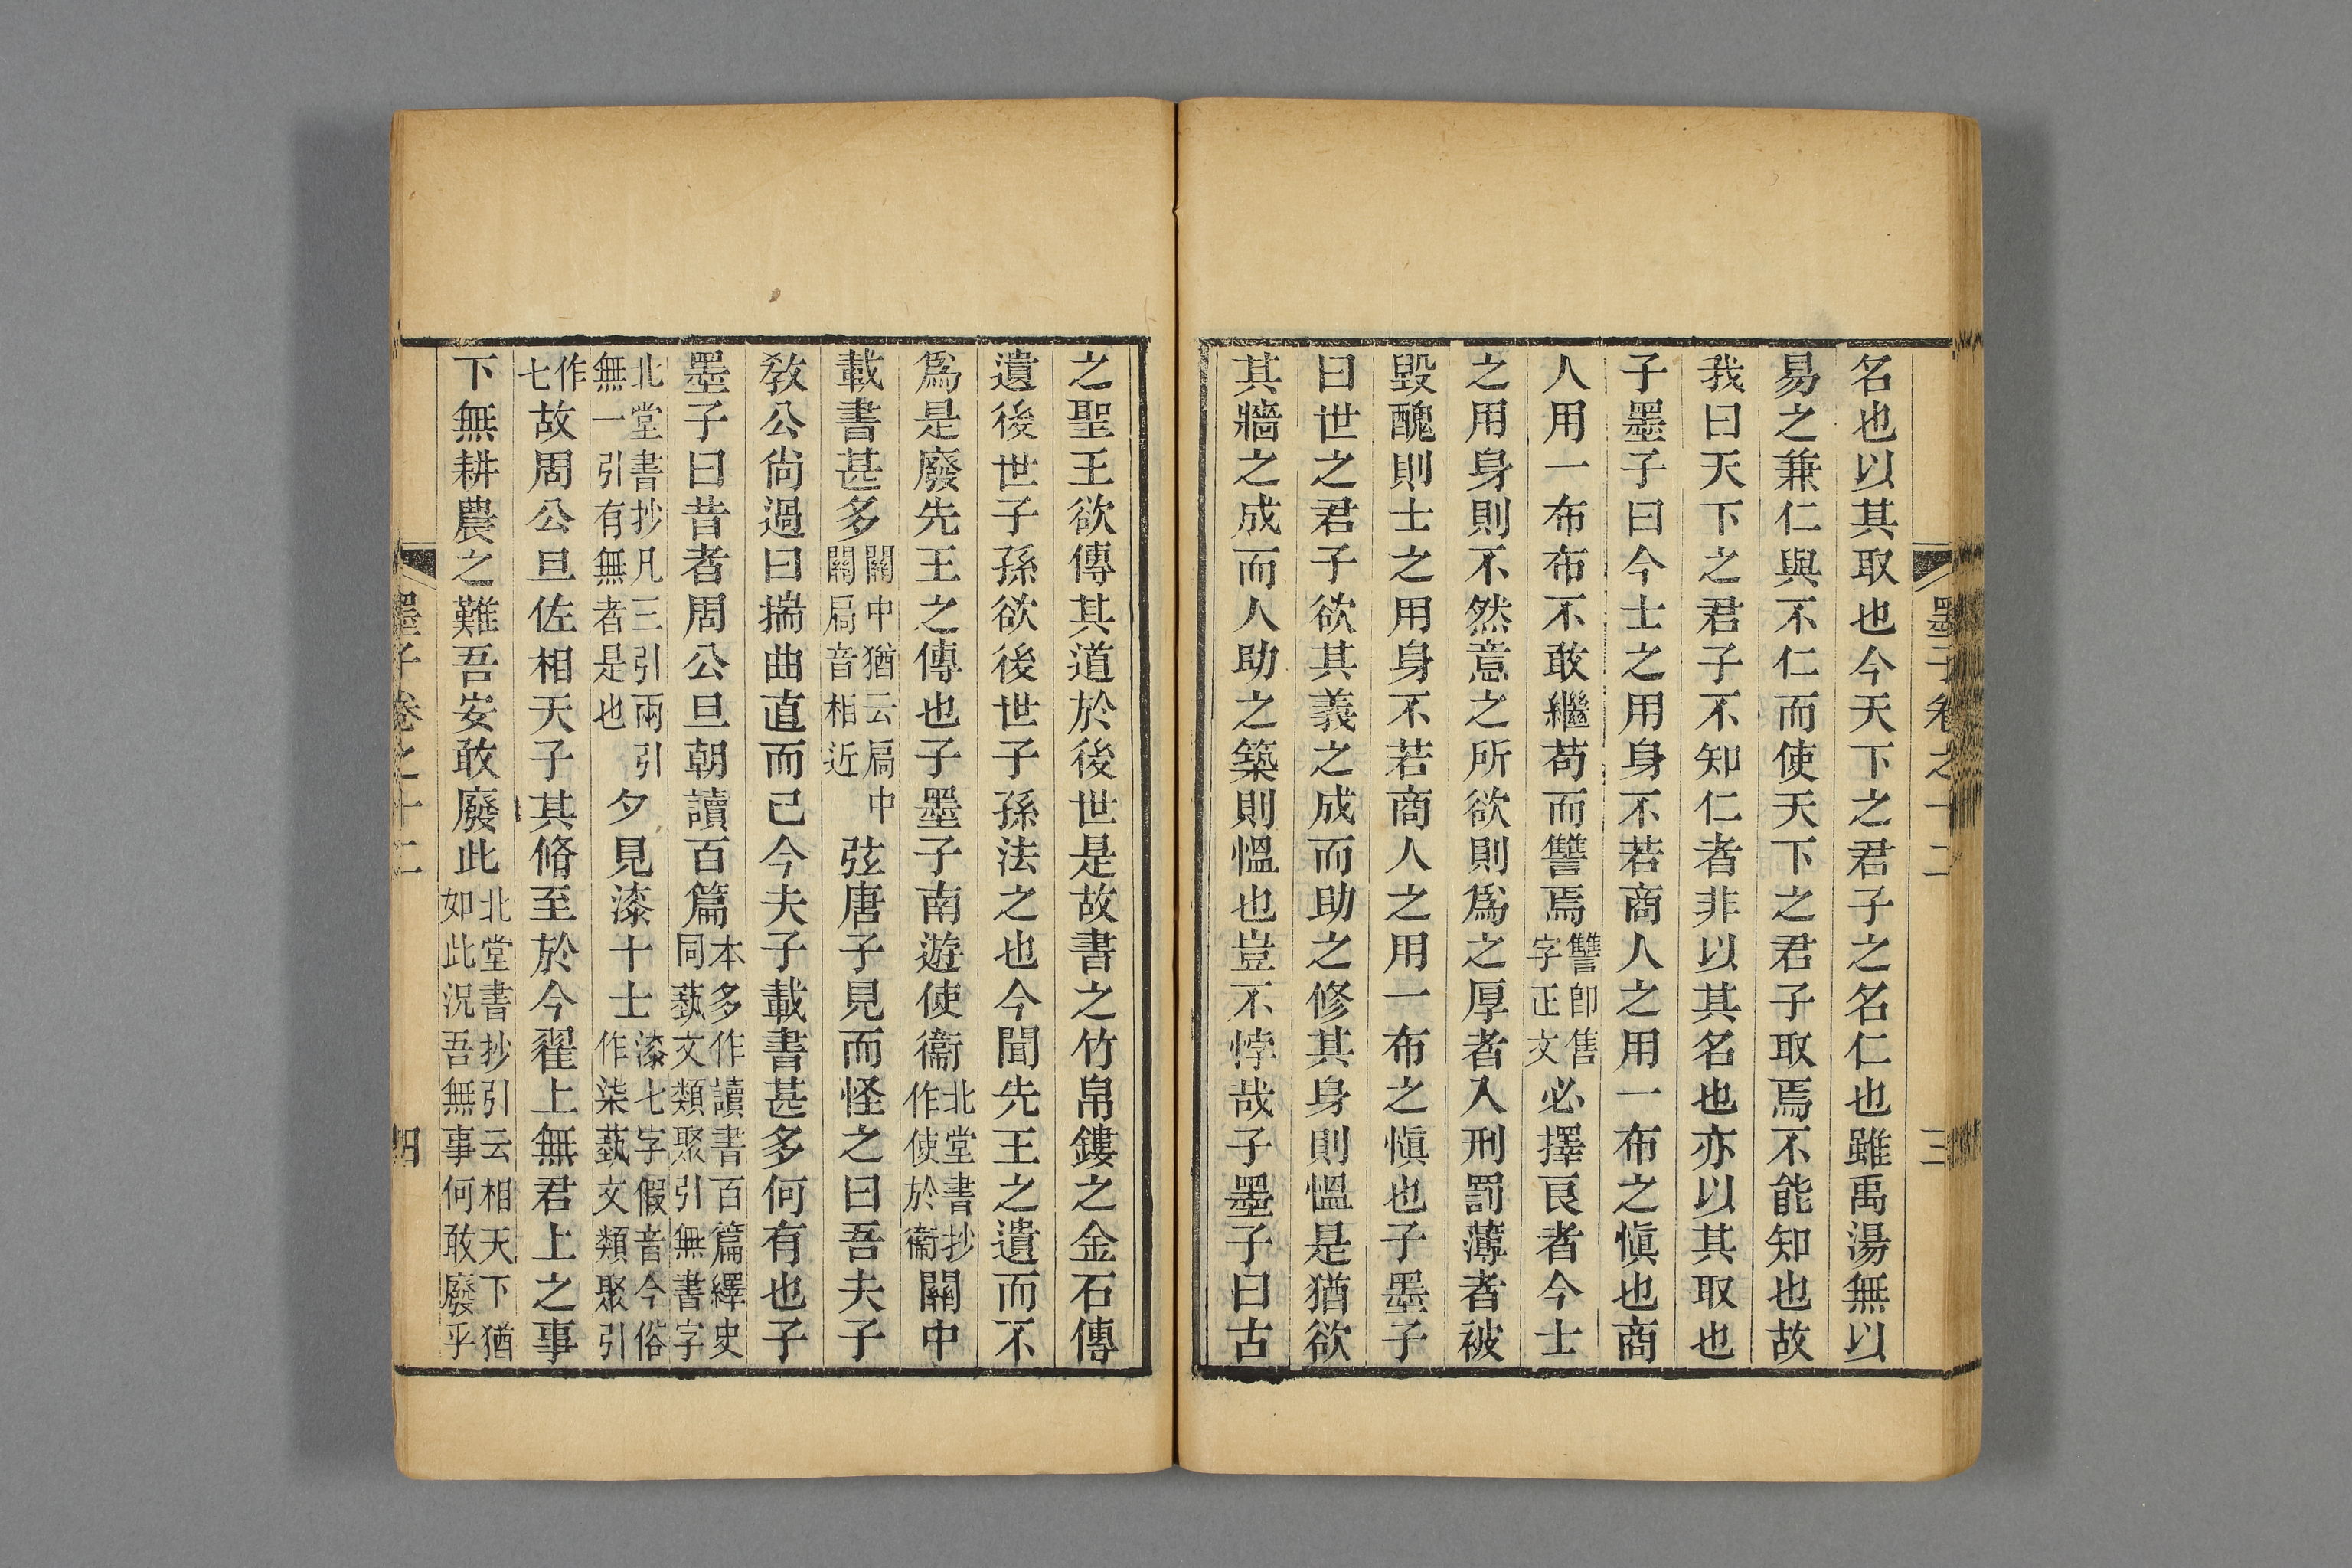 墨子卷之十二 三
名也以其取也今天下之君子之名仁也雖禹湯無以
易之兼仁與不仁而使天下之君子取焉不能知也故
我曰天下之君子不知仁者非以其名也亦以其取也
子墨子曰今士之用身不若商人之用一布之愼也商
人用一布布不敢繼苟而讐焉讐卽售字正文必擇良者今士
之用身則不然意之所欲則爲之厚者入刑罰薄者被
毀醜則士之用身不若商人之用一布之愼也子墨子
曰世之君子欲其義之成而助之修其身則慍是猶欲
其牆之成而人助之築則慍也豈不悖哉子墨子曰古
之聖王欲傳其道於後世是故書之竹帛鏤之金石傳
遺後世子孫欲後世子孫法之也今聞先王之遺而不
爲是廢先王之傳也子墨子南遊使衞北堂書抄作使於衞關中
載書甚多關中猶云扃中關扃音相近弦唐子見而怪之曰吾夫子
敎公尙過曰揣曲直而已今夫子載書甚多何有也子
墨子曰昔者周公旦朝讀百篇本多作讀書百篇繹史同蓺文類聚引無書字
北堂書抄凡三引兩引無一引有無者是也夕見漆十士漆七字假音今俗作柒蓺文類聚引
作七故周公旦佐相天子其脩至於今翟上無君上之事
下無耕農之難吾安敢廢此北堂書抄引云相天下猶如此況吾無事何敢廢乎
墨子卷之十二 四